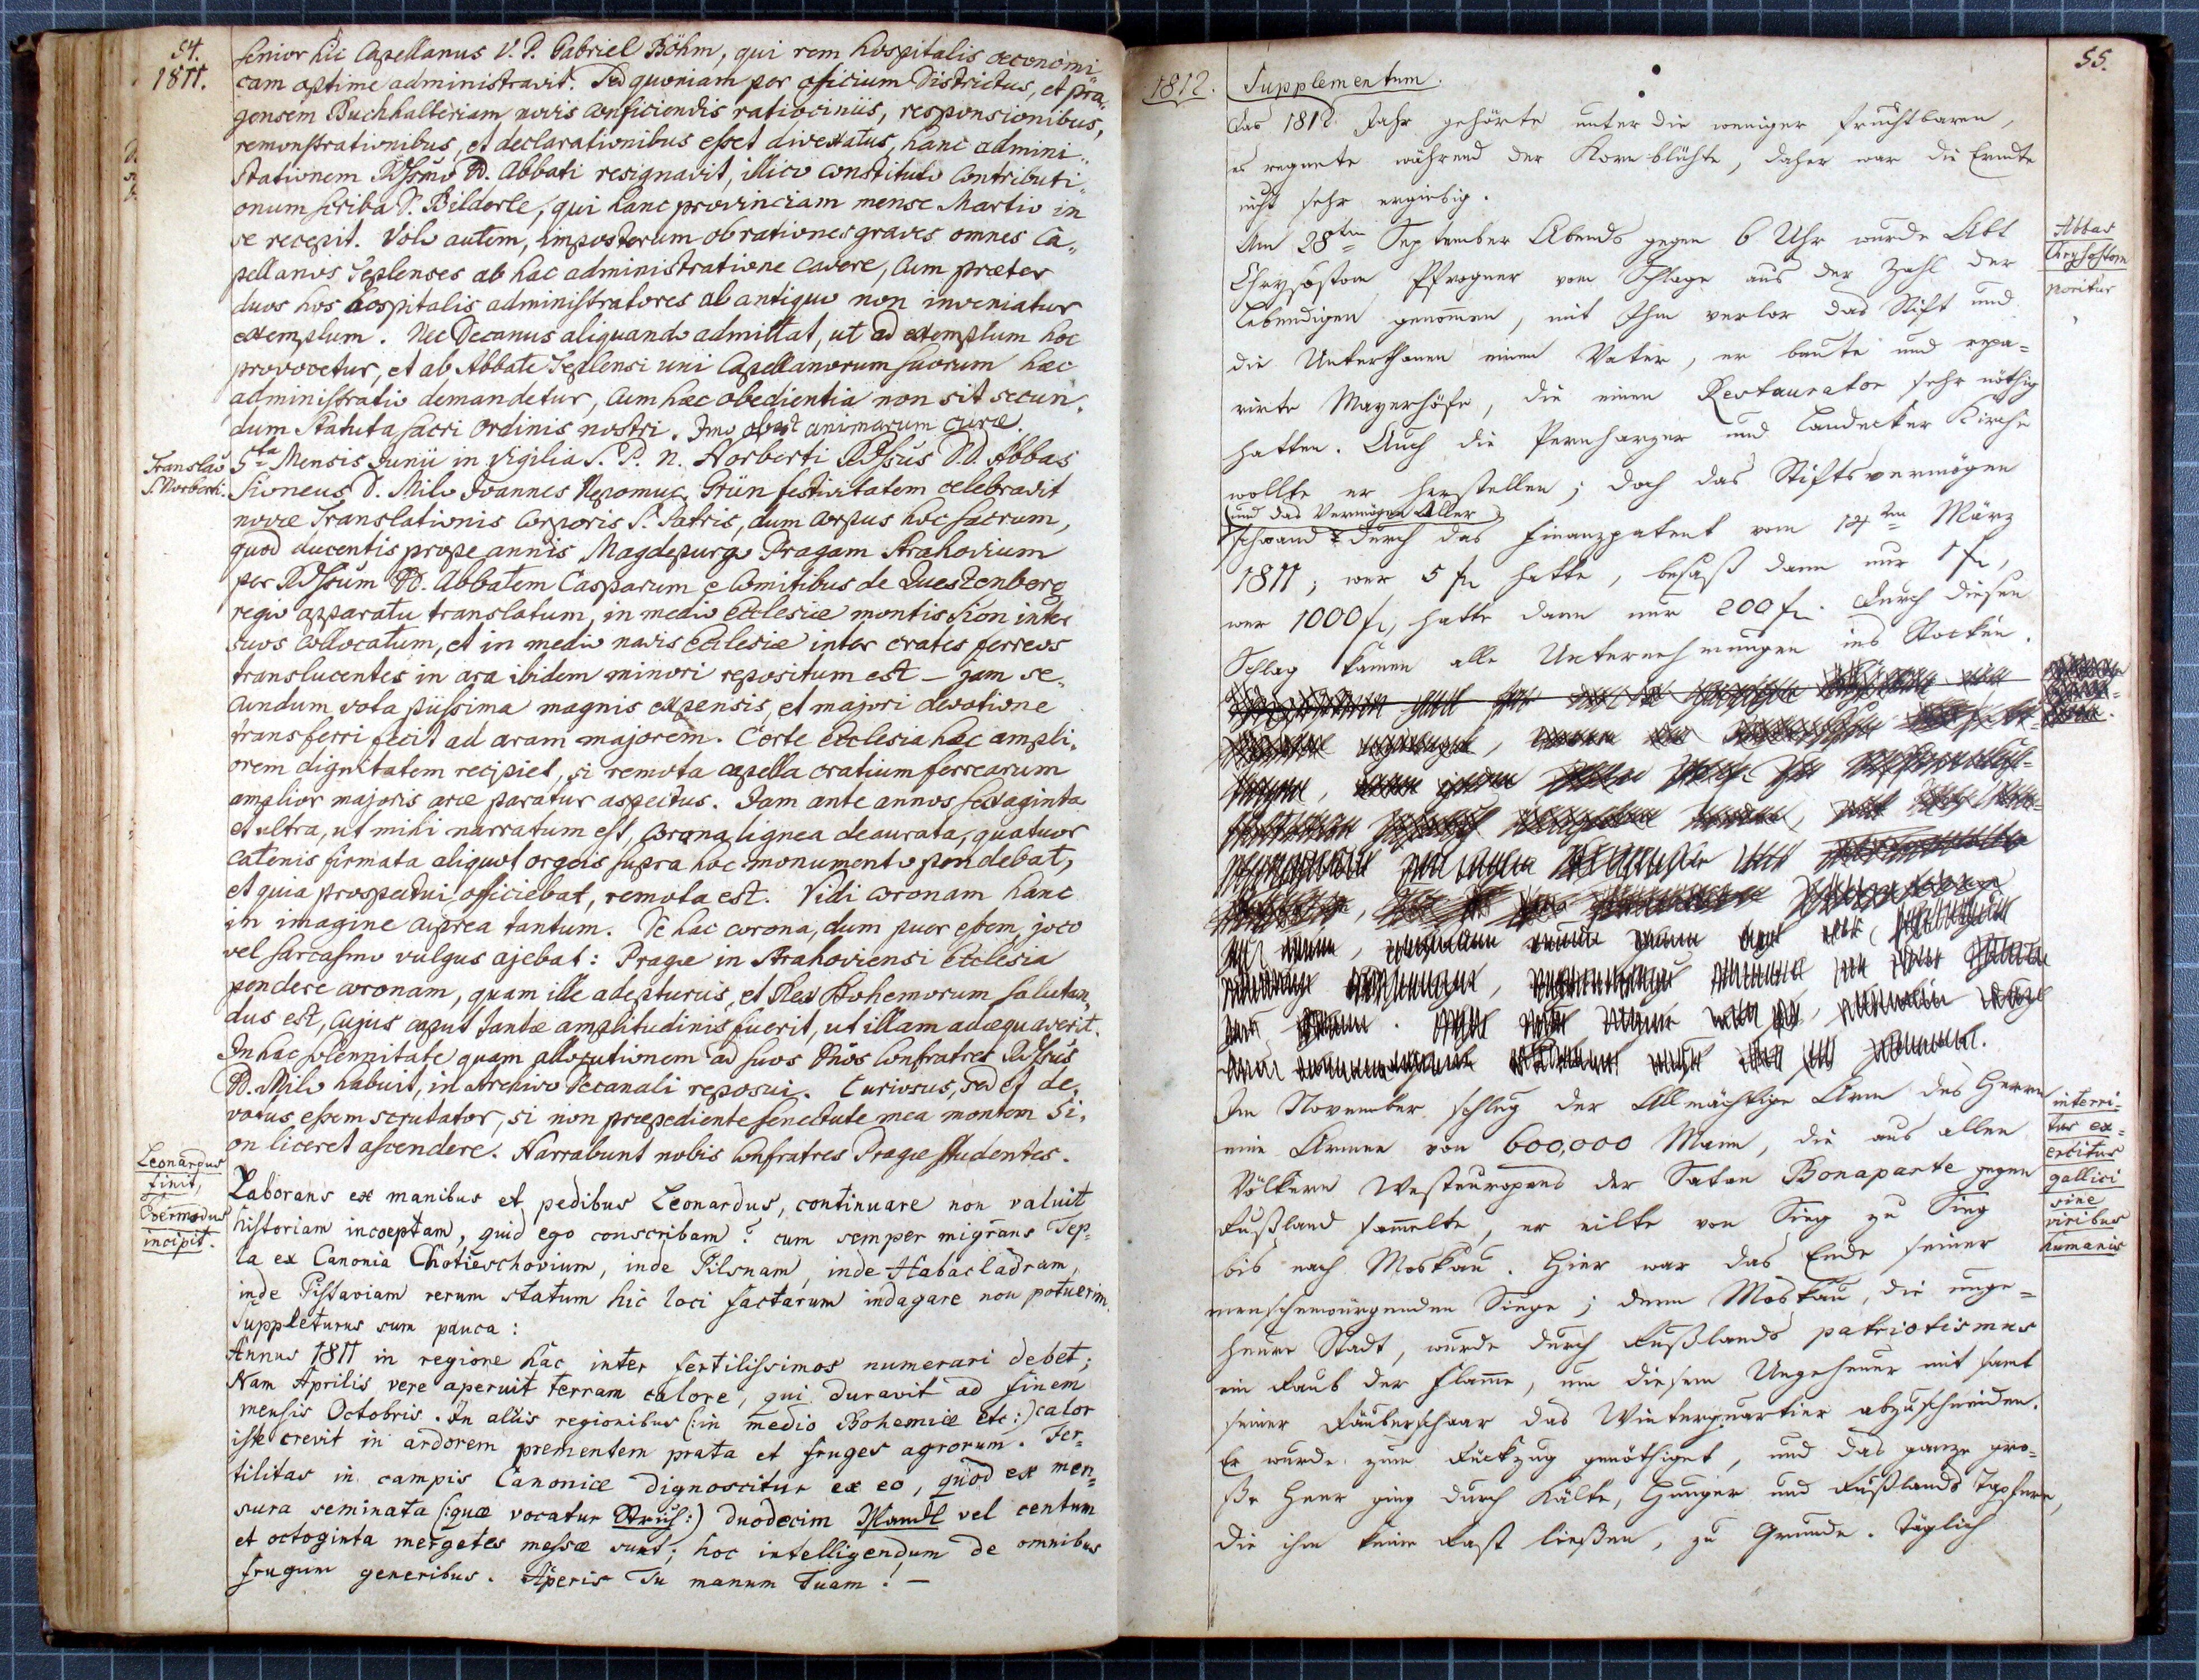 54.
1811.
senior hic Capellanus V. P. Gabriel Böhm, qui rem hospitalis oeconomi„
cam optime administravit. Sed quoniam per officium Districtus, et pra„
gensem Buchhalteriam novis conficiendis ratiociniis, responsionibus,
remonstrationibus, et declarationibus esset divexatus, hanc admini„
strationem RDssmo D. Abbati resignavit, illico constituto Contributi„
onum scriba D. Bilderle, qui hanc provinciam mense Martio in
se recepit. Volo autem, imposterum ob rationes graves omnes Ca„
pellanos Teplenses ab hac administratione cavere, cum præter
duos hos hospitalis administratores ab antiquo non inveniatur
exemplum. Nec Decanus aliquando admittat, ut ad exemplum hoc
provocetur, et ab Abbate Teplensi uni Capellanorum suorum hæc
administratio demandetur, cum hæc obedientia non sit secun„
dum Statuta sacri Ordinis nostri. Imo obest animarum curæ.
Translatio
S. Norberti.
5ta Mensis Junii in vigilia S. P. N. Norberti RDssus DD. Abbas
Sioneus D. Milo Joannes Nepomuc. Grün festivitatem celebravit
novæ Translationis Corporis S. Patris, dum corpus hoc sacrum,
quod ducentis prope annis Magdepurgo Pragam Strahovium
per RDssum DD. Abbatem Casparum e Comitibus de Questenberg
regio apparatu translatum, in medio Ecclesiæ montis Sion inter
suos collocatum, et in medio navis Ecclesiæ inter crates ferreos
translucentes in ara ibidem minori repositum est – jam se„
cundum vota piissima magnis expensis, et majori devotione
transferri fecit ad aram majorem. Certe Ecclesia hæc ampli„
orem dignitatem recipiet, si remota capella cratium ferrearum
amplior majoris aræ paratur aspectus. Jam ante annos sexaginta
et ultra, ut mihi narratum est, corona lignea deaurata, quatuor
catenis firmata aliquot orgeis supra hoc monumento pendebat,
et quia prospectui officiebat, remota est. Vidi coronam hanc
in imagine cuprea tantum. De hac corona, dum puer essem, joco
vel sarcasmo vulgus ajebat: Pragæ in Strahoviensi Ecclesia
pendere coronam, quam ille adepturus, et Rex Bohemorum salutan„
dus est, cujus caput tantæ amplitudinis fuerit, ut illam adæquaverit.
In hac solennitate quam allocutionem ad suos Dnos Confratres RDssus
DD. Milo habuit, in Archivo Decanali reposui. Curiosus, sed et de„
votus essem scrutator, si non præpediente senectute mea montem Si„
on liceret ascendere. Narrabunt nobis Confratres Pragæ studentes.
Leonardus
finit,
Evermodus
incipit.
Laborans ex manibus et pedibus Leonardus, continuare non valuit
historiam incoeptam, quid ego conscribam? cum semper migrans Tep=
la ex Canonia Chotieschovium, inde Pilsnam, inde Habacladram,
inde Pistaviam rerum statum hic loci factarum indagare non potuerim.
Suppleturus sum pauca:
Annus 1811 in regione hac inter fertilissimos numerari debet;
Nam Aprilis vere aperuit terram calore, qui duravit ad finem
mensis Octobris. In aliis regionibus (:in medio Bohemiæ etc:) calor
iste crevit in ardorem prementem prata et fruges agrorum. Fer=
tilitas in campis Canoniæ dignoscitur ex eo, quod ex men=
sura seminata (:quæ vocatur Strich:) duodecim Mandl vel centum
et octoginta mergetes messæ sunt; hoc intelligendum de omnibus
frugum generibus. Aperis Tu manum Tuam! –
55.
1812. Supplementum.
Das 1812 Jahr gehörte unter die weniger fruchtbaren,
es regnete während der Korn blühte, daher war die Erndte
nicht sehr ergiebig.
Abbas
Chrysostom
moritur
Am 28ten September Abends gegen 6 Uhr wurde Abt
Chrysostom Pfrogner vom Schlage aus der Zahl der
Lebendigen genommen, mit Ihm verlor das Stift und
die Unterthanen einen Vater, er baute und repa=
rirte Mayerhöfe, die einen Restaurator sehr nöthig
hatten. Auch die Pernharzer und Landecker Kirche
wollte er herstellen; doch das Stiftsvermögen
(und das Vermögen Aller)
schwand durch das Finanzpatent vom 14ten März
1811; wer 5 fl hatte, besaß dann nur 1 fl,
wer 1000 fl, hatte dann nur 200 fl. Durch diesen
Schlag kamen alle Unternehmungen ins Stocken.
interri=
tus ex=
ercitus
gallici
sine
viribus
humanis
Im November schlug der Allmächtige Arm des Herrn
eine Armee von 600,000 Mann, die aus allen
Völkern Westeuropens der Satan Bonaparte gegen
Rußland sammelte, er eilte von Sieg zu Sieg
bis nach Moskau. Hier war das Ende seiner
menschenwürgenden Siege; denn Moskau, die unge=
heure Stadt, wurde durch Rußlands patriotismus
ein Raub der Flamme, um diesem Ungeheuer mit samt
seiner Räuberschaar das Winterquartier abzuschneiden.
Er wurde zum Rückzug genöthiget, und das ganze gro=
ße Heer ging durch Kälte, Hunger und Rußlands Tapfere,
die ihm keine Rast ließen, zu Grunde. Täglich